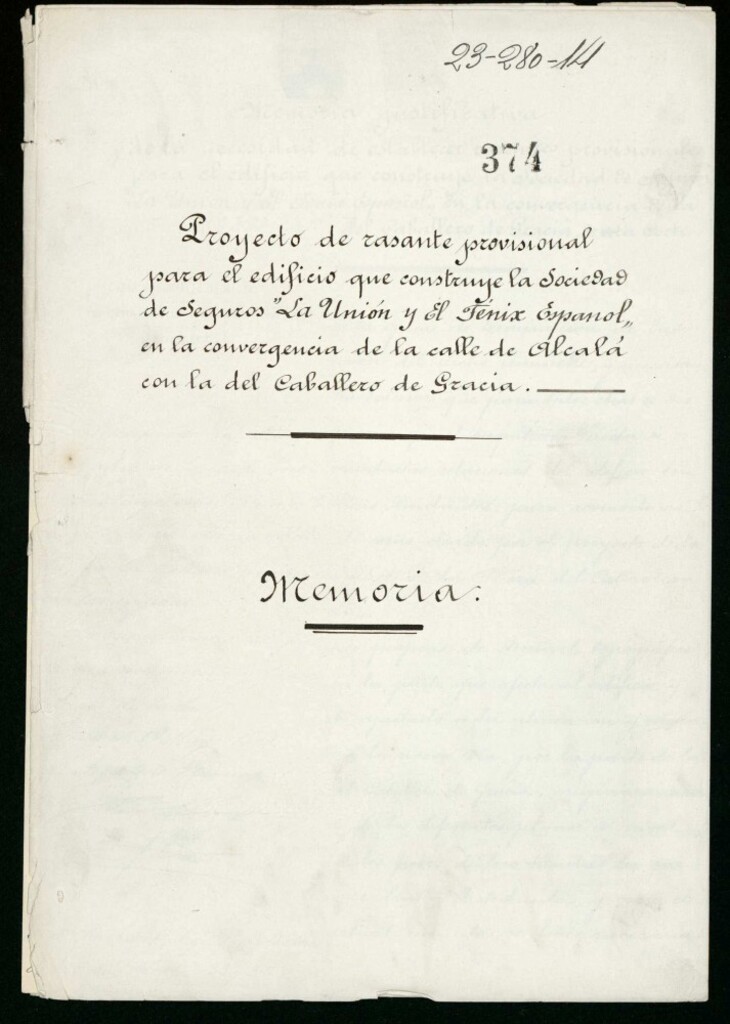 23-280-14
374
Proyecto de rasante provisional
para el edificio que construye la Sociedad
de Seguros "La Unión y El Fénix Español,,
en la convergencia de la calle de Alcalá
con la del Caballero de Gracia.
Memoria.